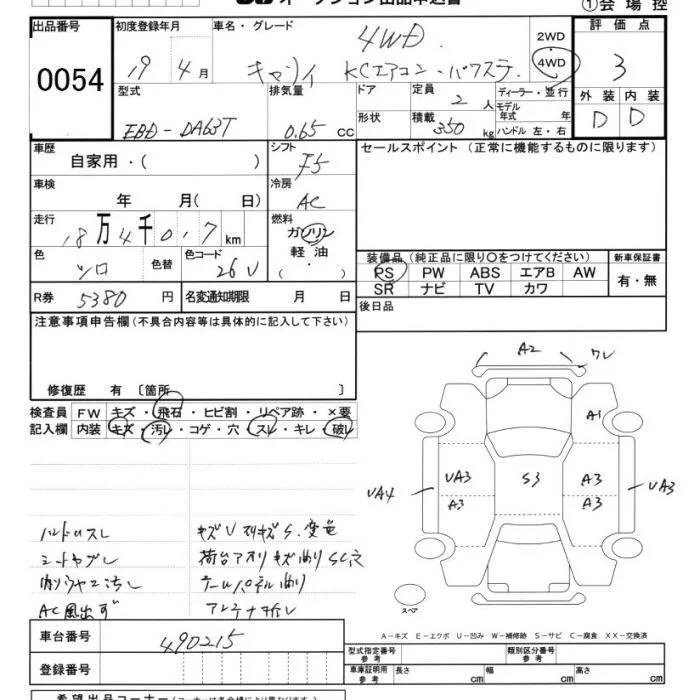 オークション出品申込書
①会場控
出品番号 初度登録年月 車名・グレード 2WD 評価点
0054 19 4月 キャリイ 4WD KCエアコン・パワステ 4WD 3
型式 排気量 ドア 定員 2人 ディーラー・並行 外装 内装
EBD-DA63T 0.65 CC 形状 積載 350kg モデル年式 年 ハンドル 左・右 D D
車歴 自家用・( ) シフト F5 セールスポイント(正常に機能するものに限ります)
車検 年 月(日) 冷房 AC
走行 18万4千017km 燃料 ガソリン 軽油 ・( )
色 シロ 色替 色コード 26U
装備品(純正品に限り○をつけてください) 新車保証書
PS PW ABS エアB AW 有・無
SR ナビ TV カワ
R券 5380円 名変通知期限 月 日 後日品
注意事項申告欄(不具合内容等は具体的に記入して下さい)
修復歴 有〔箇所 〕
検査員 FW キズ・飛石・ヒビ割・リペア跡・×要
記入欄 内装 キズ・汚レ・コゲ・穴・スレ・キレ・破レ
A2 ワレ
A1
UA4 UA3 S3 A3 UA3
A3 A3
スペア
ハンドルスレ キズU
シートヤブレ 荷台アオリキズ曲り SC穴
テールパネル曲り
AC風出ず アンテナ折レ
A-キズ E-エクボ U-凹み W-補修跡 S-サビ C-腐食 XX-交換済
車台番号 490215 型式指定番号 参考 類別区分番号 参考
登録番号 車庫証明用 参考 長さ cm 幅 cm 高さ cm
希望出品コーナー